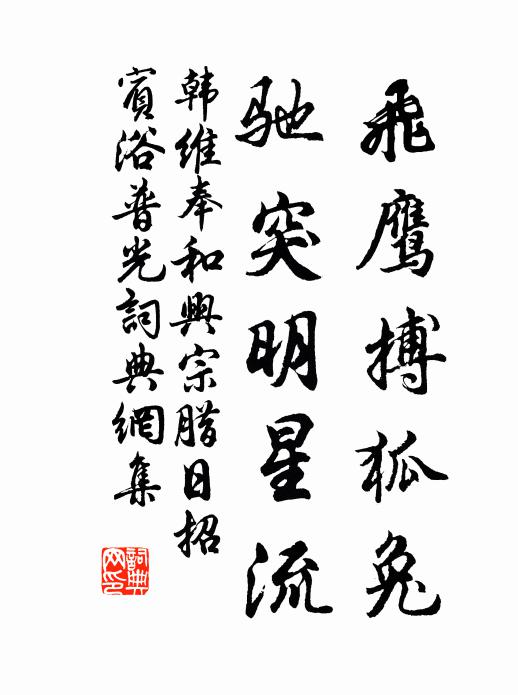 飛鷹搏狐兔
驰突明星流
韩維奉和興宗腊日招
賓浴普光詞典網集
詞典网印